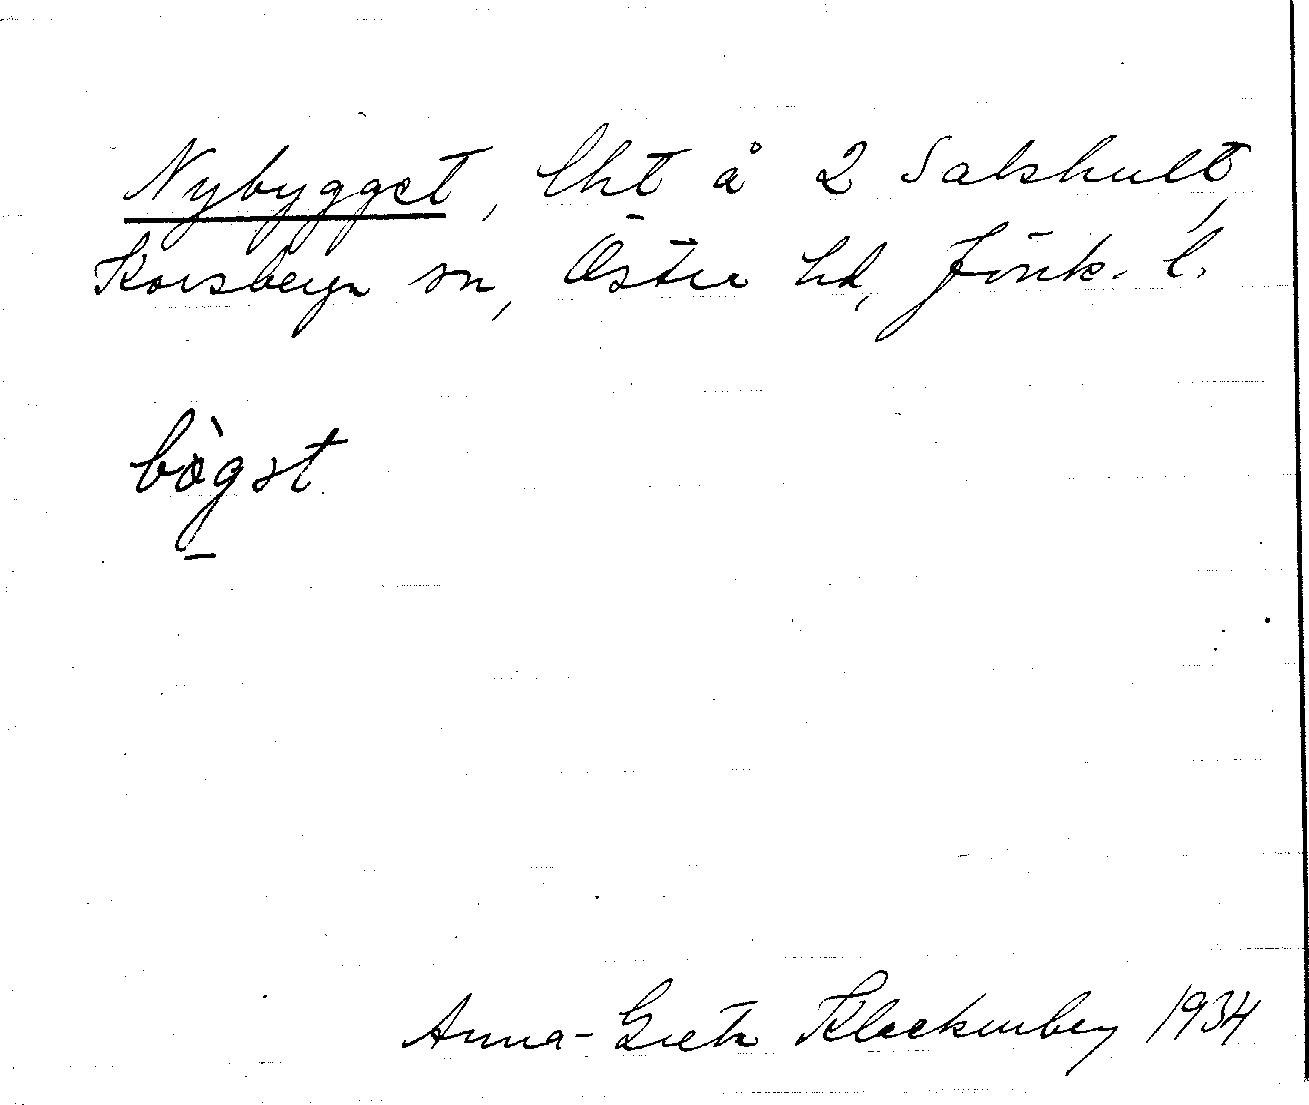 Nybygget, lht å 2 Salshult,
Korsberga sn, Östra hd, Jönk. l.
bògst
Anna-Greta Klockenberg 1934